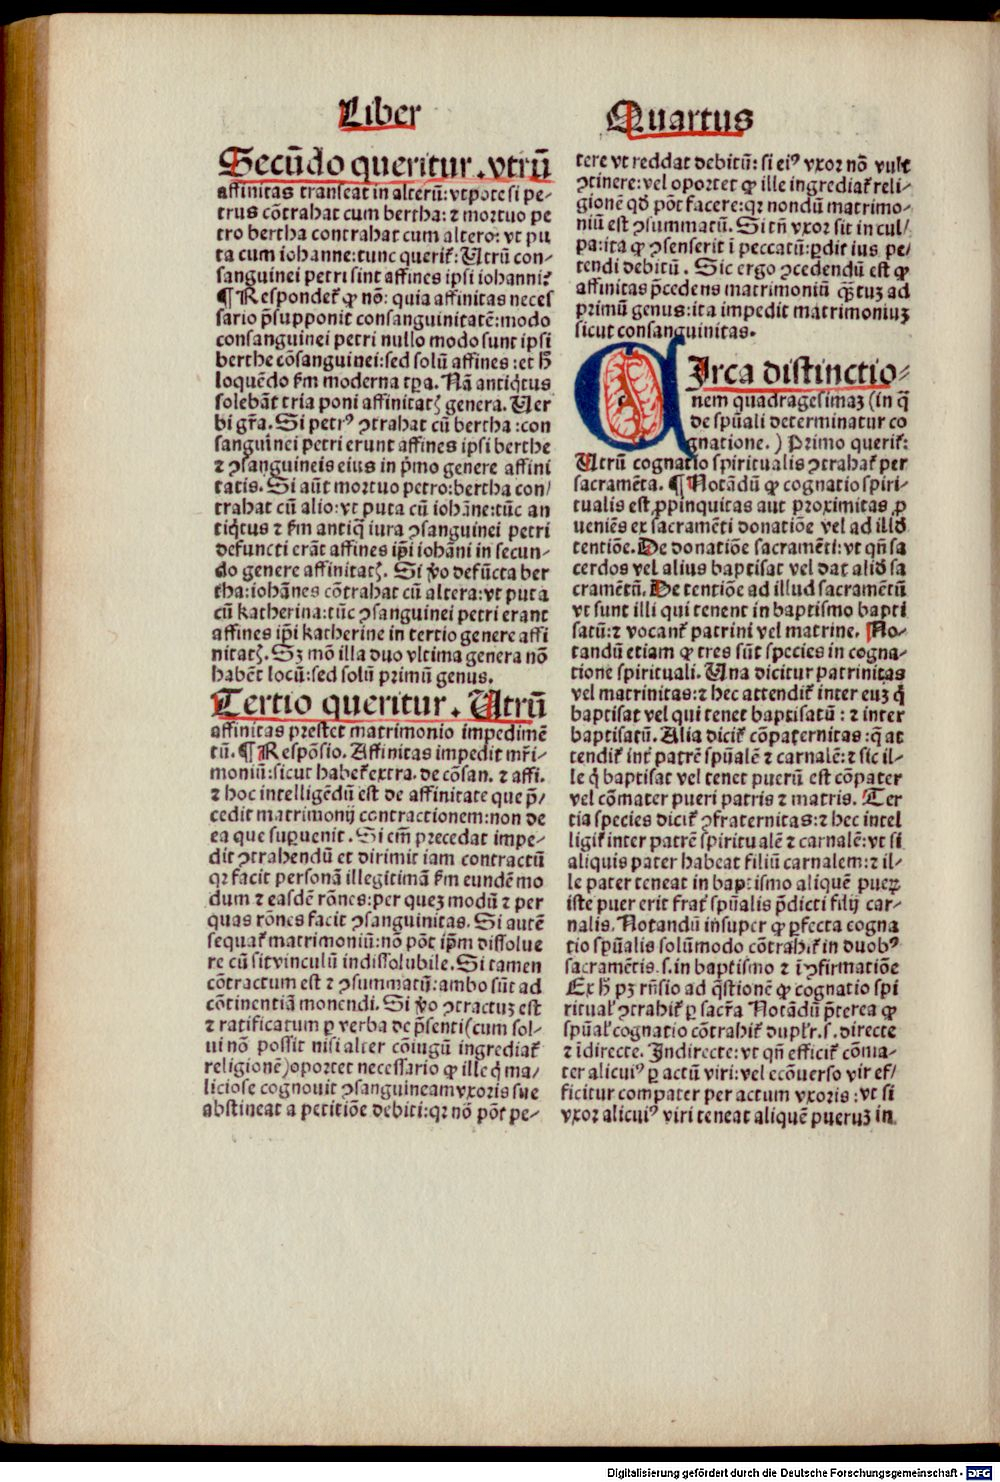 Liber Quartus
Secūdo queritur . vtrū
affinitas transeat in alterū: vtpote si pe-
trus cōtrahat cum bertha: ⁊ mortuo pe
tro bertha contrahat cum altero: vt pu
ta cum iohanne: tunc querit̃: Utrū con-
sanguinei petri sint affines ipsi iohanni?
¶ Respondet̃ ꝙ nō: quia affinitas neces
sario p̄supponit consanguinitatē: modo
consanguinei petri nullo modo sunt ipsi
berthe cōsanguinei: sed solū affines : et h̄
loquēdo ẜm moderna tp̄a. Nā antiq̇tus
solebāt tria poni affinitatꝭ genera. Uer
bi gr̄a. Si petrꝰ ꝯtrahat cū bertha : con
sanguinei petri erunt affines ipsi berthe
⁊ ꝯsanguineis eius in p̄mo genere affini
tatis. Si aūt mortuo petro: bertha con/
trahat cū alio: vt puta cū iohāne: tūc an
tiq̇tus ⁊ ẜm antiq̄ iura ꝯsanguinei petri
defuncti erāt affines ip̄i iohāni in secun-
do genere affinitatꝭ. Si v̄o defūcta ber
tha: iohānes cōtrahat cū altera: vt puta
cū katherina: tūc ꝯsanguinei petri erant
affines ip̄i katherine in tertio genere affi
nitatꝭ. Sꝫ mō illa duo vltima genera nō
habēt locū: sed solū primū genus.
Tertio queritur . Utrū
affinitas prestet matrimonio impedimē
tū. ¶ Respōsio. Affinitas impedit mr̄i-
moniū: sicut habet̃ extra. de cōsan. ⁊ affi.
⁊ hoc intelligēdū est de affinitate que p̄/
cedit matrimonij contractionem: non de
ea que suꝑuenit . Si em̄ precedat impe-
dit ꝯtrahendū et dirimit iam contractū
qꝛ facit personā illegitimā ẜm eundē mo
dum ⁊ easdē rōnes: per queꝫ modū ⁊ per
quas rōnes facit ꝯsanguinitas. Si autē
sequat̃ matrimoniū: nō pōt ip̄m dissolue
re cū sit vinculū indissolubile. Si tamen
cōtractum est ⁊ ꝯsummatū: ambo sūt ad
cōtinentiā monendi. Si v̄o ꝯtractuꝫ est
⁊ ratificatum ꝑ verba de p̄senti (cum sol-
ui nō possit nisi alter cōiugū ingrediat̃
religionē) oportet necessario ꝙ ille q̇ ma/
liciose cognouit ꝯsanguineam vxoris sue
abstineat a petitiōe debiti: qꝛ nō pōt̃ pe-
tere vt reddat debitū: si eiꝰ vxor nō vult
ꝯtinere: vel oportet ꝙ ille ingrediat̃ reli-
gionē qd̄ pōt facere: qꝛ nondū matrimo-
niū est ꝯsummatū. Si tn̄ vxor sit in cul/
pa: ita ꝙ ꝯsenserit ī peccatū: ꝑdit ius pe/
tendi debitū . Sic ergo ꝯcedendū est ꝙ
affinitas p̄cedens matrimoniū qꝫ̄tuꝫ ad
primū genus: ita impedit matrimoniuꝫ
sicut consanguinitas.
CIrca distinctio-
nem quadragesimaꝫ (in q̄
de sp̄uali determinatur co
gnatione. ) Primo querit̃:
Utrū cognatio spiritualis ꝯtrahat̃ per
sacramēta. ¶ Notādū ꝙ cognatio spiri-
tualis est ꝓpinquitas aut proximitas ꝓ
ueniēs ex sacramēti donatiōe vel ad illō
tentiōe. De donatiōe sacramēti: vt qn̄ sa
cerdos vel alius baptisat vel dat aliō sa
cramētū. De tentiōe ad illud sacramētū
vt sunt illi qui tenent in baptismo bapti
satū: ⁊ vocant̃ patrini vel matrine. No-
tandū etiam ꝙ tres sūt species in cogna-
tione spirituali. Una dicitur patrinitas
vel matrinitas: ⁊ hec attendit̃ inter euꝫ q̇
baptisat vel qui tenet baptisatū : ⁊ inter
baptisatū. Alia dicit̃ cōpaternitas: q̄ at
tendit̃ int̃ patrē sp̄ualē ⁊ carnalē: ⁊ sic il-
le q̇ baptisat vel tenet puerū est cōpater
vel cōmater pueri patris ⁊ matris. Ter
tia species dicit̃ ꝯfraternitas: ⁊ hec intel
ligit̃ inter patrē spiritualē ⁊ carnalē: vt si
aliquis pater habeat filiū carnalem: ⁊ il-
le pater teneat in baptismo aliquē pueꝝ
iste puer erit frat̃ sp̄ualis p̄dicti filij car-
nalis. Notandū insuper ꝙ ꝑfecta cogna
tio sp̄ualis solūmodo cōtrahit̃ in duobꝰ
sacramētis .s. in baptismo ⁊ ī ꝯfirmatiōe
Ex h̄ pꝫ rn̄sio ad q̄stionē ꝙ cognatio spi
ritual̃ ꝯtrahit̃ ꝑ sacr̄a Notādū p̄terea ꝙ
sp̄ual̃ cognatio cōtrahit̃ dupl̄r .s. directe
⁊ īdirecte. Indirecte: vt qn̄ efficit̃ cōma-
ter alicuiꝰ ꝑ actū viri: vel ecōuerso vir ef/
ficitur compater per actum vxoris : vt si
vxor alicuiꝰ viri teneat aliquē pueruꝫ in
Digitalisierung gefördert durch die Deutsche Forschungsgemeinschaft - DFG